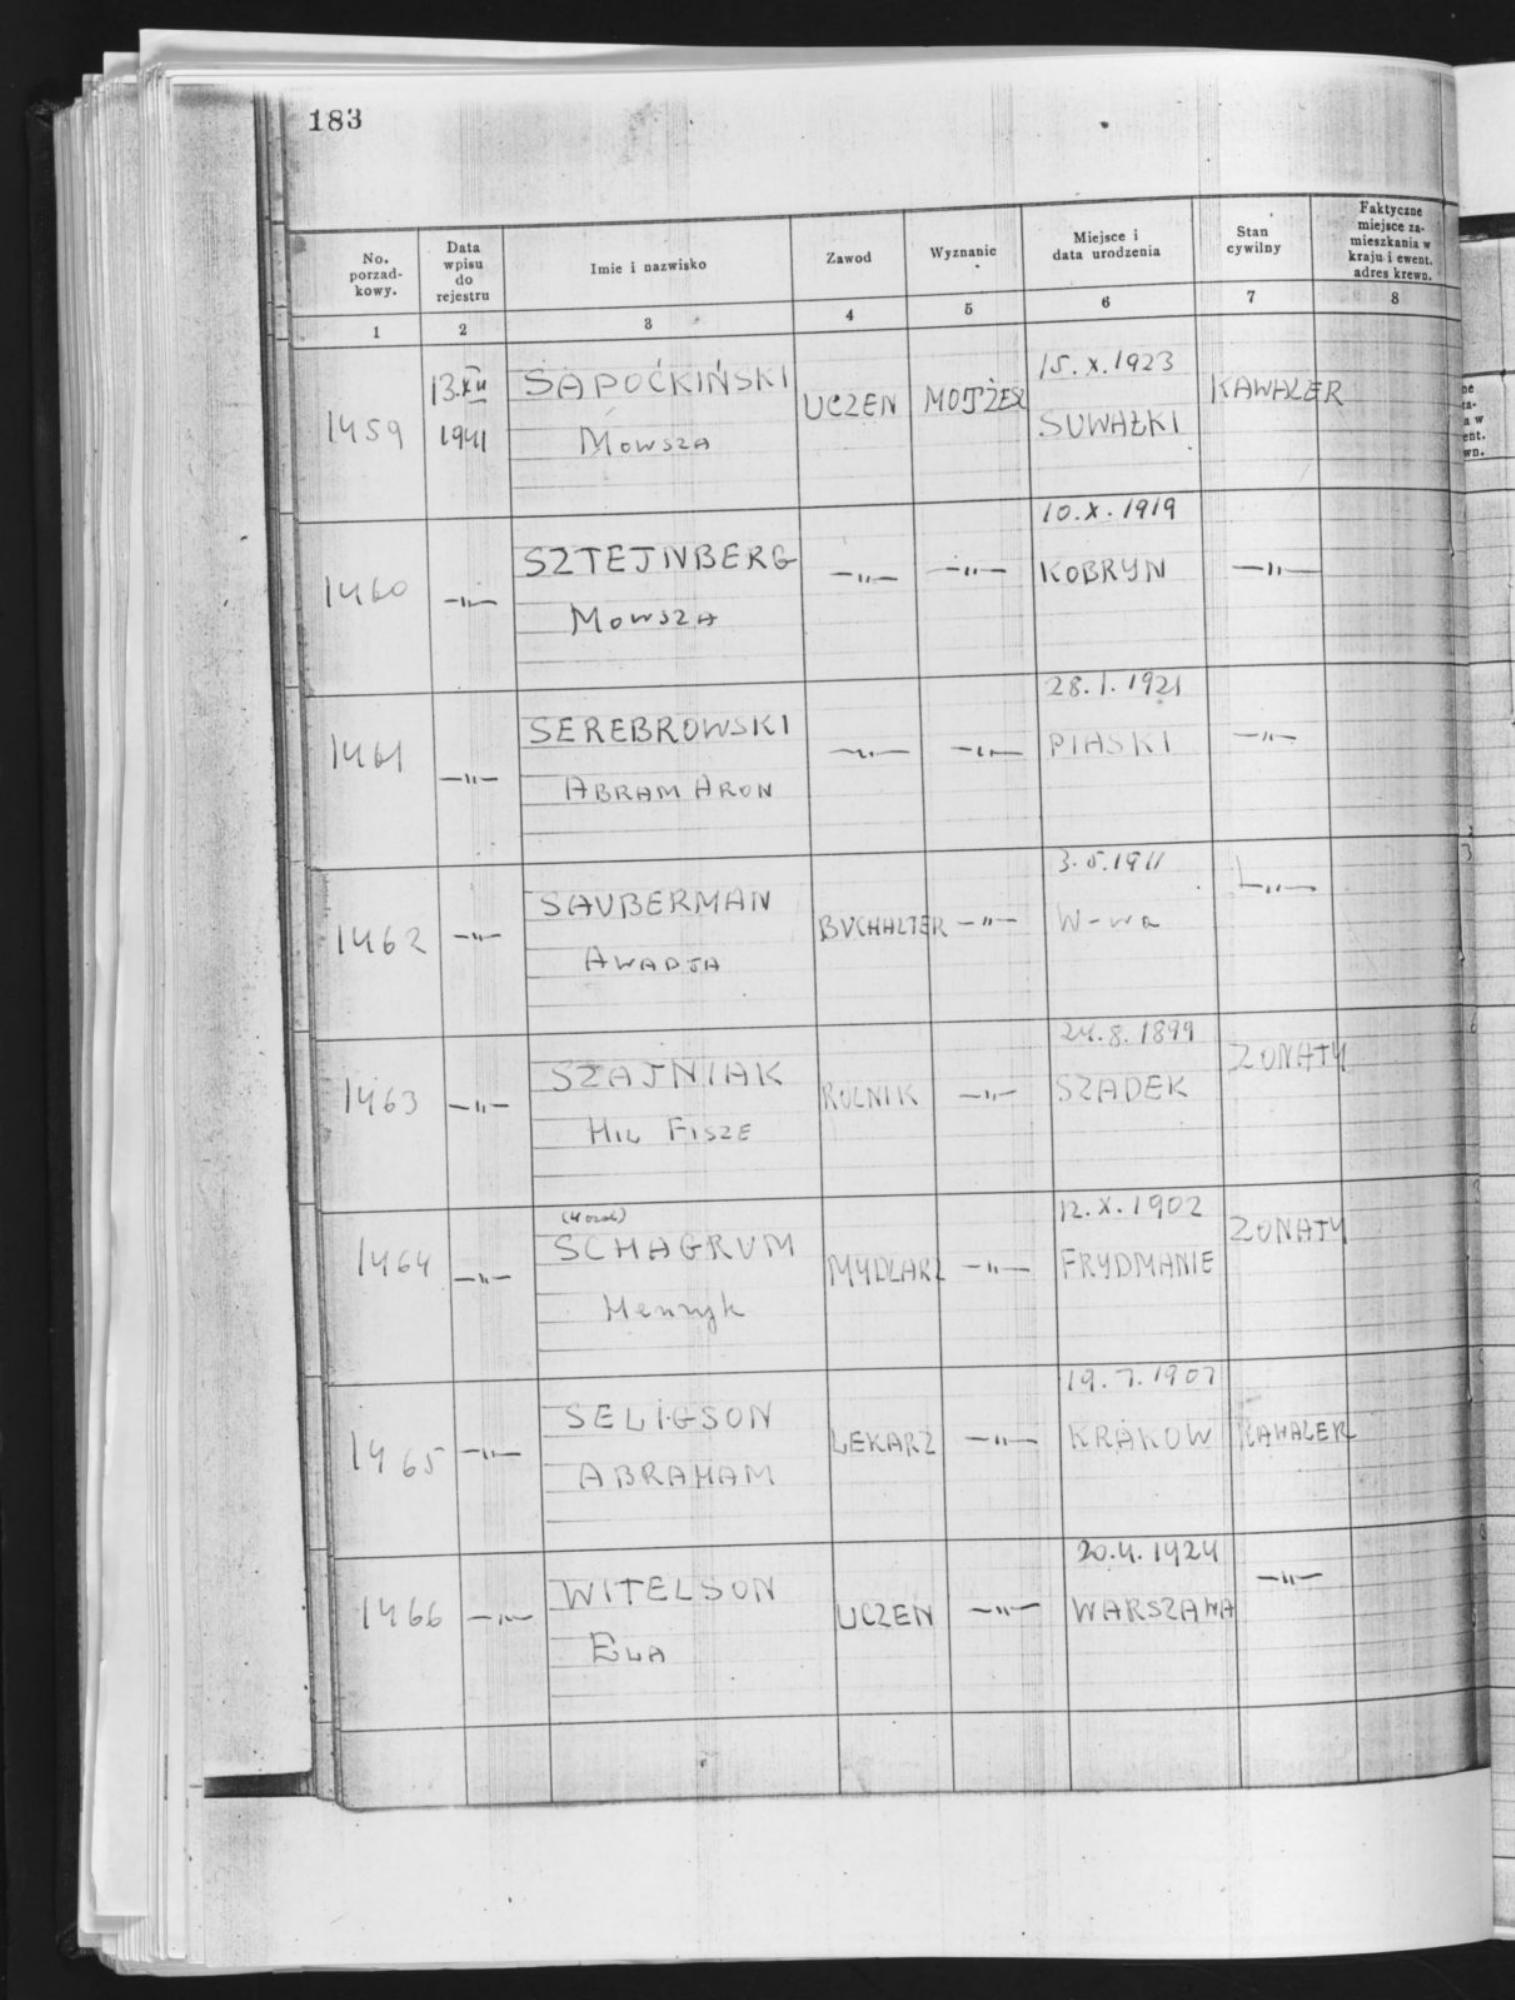 183
No. porzad- kowy.
Data wpisu do rejestru
Imie i nazwisko
Zawod
Wyznanie
Miejsce i data urodzenia
Stan cywilny
Faktyczne miejsce za- mieszkania w kraju i ewent. adres krewn.
1 2 3 4 5 6 7 8
1459 13.XII 1941 SAPOĆKIŃSKI UCZEN MOJŻESZ 15.X.1923 KAWALER
Mowsza SUWAŁKI
10.X.1919
1460 —"— SZTEJNBERG —"— —"— KOBRYN —"—
Mowsza
28.I.1921
1461 —"— SEREBROWSKI —"— —"— PIASKI —"—
ABRAM ARON
3.5.1911
1462 —"— SAUBERMAN BUCHALTER —"— W-wa —"—
AWADJA
24.8.1899
1463 —"— SZAJNIAK ROLNIK —"— SZADEK ZONATY
HIL FISZE
12.X.1902
1464 —"— SCHAGRUM MYDLARZ —"— FRYDMANIE ZONATY
Henryk
19.7.1907
1465 —"— SELIGSON LEKARZ —"— KRAKOW KAWALER
ABRAHAM
20.4.1924
1466 —"— WITELSON UCZEN —"— WARSZAWA —"—
ELA